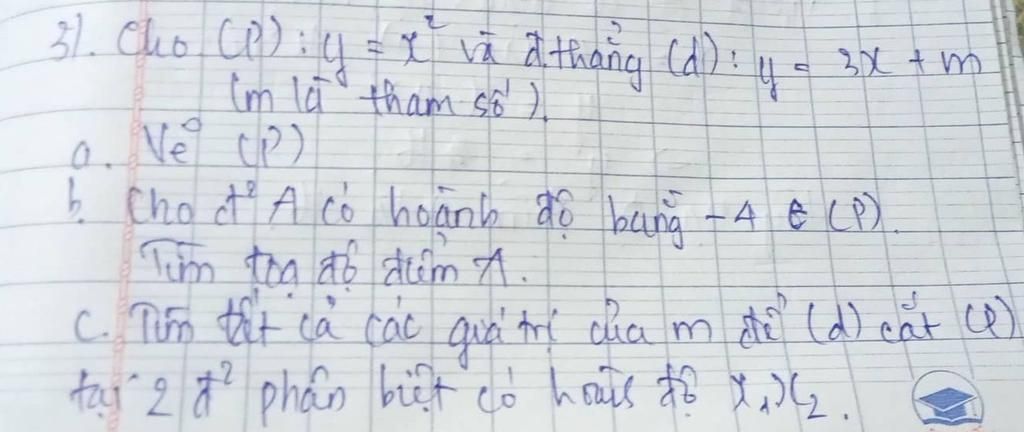 31. Cho (P): y = x² và đ thẳng (d): y = 3x + m
(m là tham số).
a. Vẽ (P)
b. Cho đ² A có hoành độ bằng -4 ∈ (P).
Tìm toạ độ điểm A.
c. Tìm tất cả các giá trị của m để (d) cắt (P)
tại 2 đ² phân biệt có hoành độ x₁, x₂.